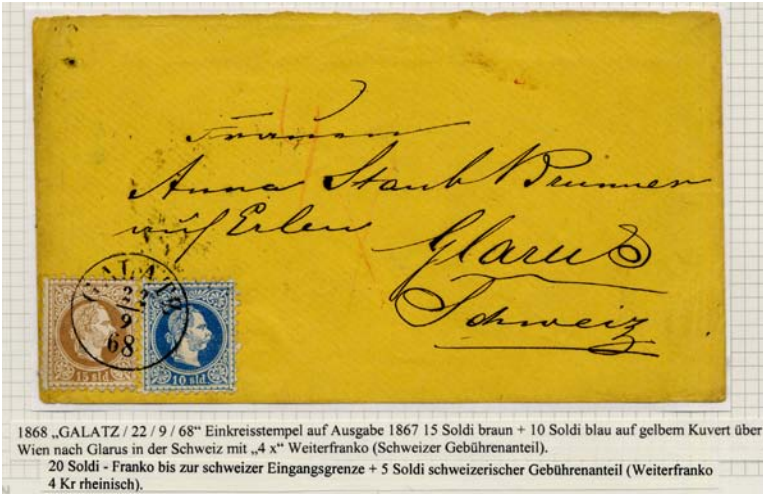 Frauen
Anna Staub Brunner
auf Erlen
Glarus
Schweiz
GALATZ
22
9
68
15 sld.
10 sld.
1868 „GALATZ / 22 / 9 / 68“ Einkreisstempel auf Ausgabe 1867 15 Soldi braun + 10 Soldi blau auf gelbem Kuvert über
Wien nach Glarus in der Schweiz mit „4 x“ Weiterfranko (Schweizer Gebührenanteil).
20 Soldi - Franko bis zur schweizer Eingangsgrenze + 5 Soldi schweizerischer Gebührenanteil (Weiterfranko
4 Kr rheinisch).